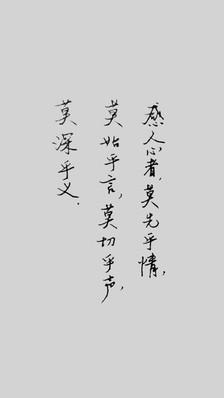 感人心者，莫先乎情，
莫始乎言，莫切乎声，
莫深乎义.